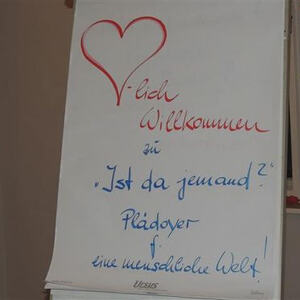 -lich
Willkommen
zu
"Ist da jemand?"
Plädoyer
f.
eine menschliche Welt!